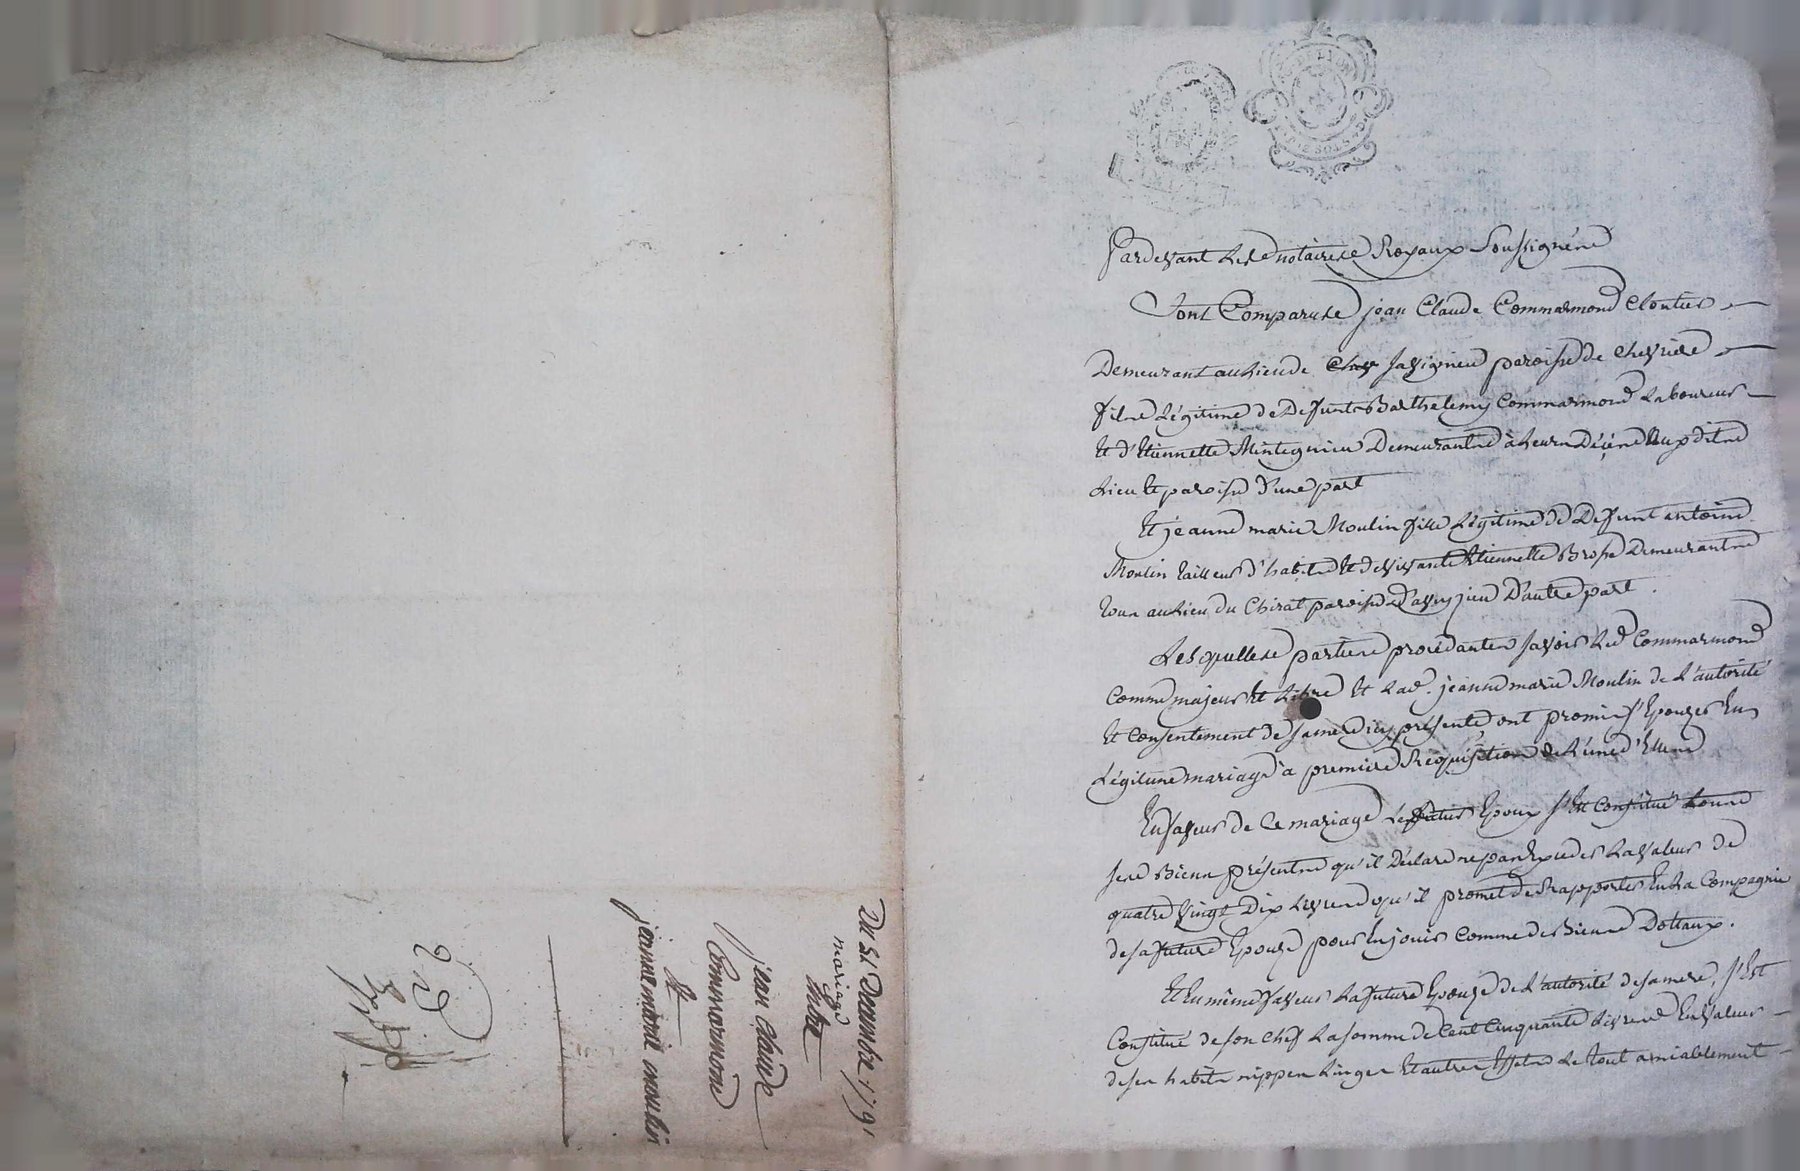 Du 31 Decembre 1791
mariage
Entre
jean claude
Commarmond
Et
jeanne marie moulin
2 nd
Expp
Pardevant Les notaires Royaux Soussignés
Sont Comparus jean Claude Commarmond Cloutier
Demeurant au Lieu de Savignieu paroisse de Chevriere
fils Légitime de Defunts Barthelemy Commarmond Laboureur
Et d'Etiennette Demeurants à Leurs Décés Auxdits
Lieu Et paroisse d'une part
Et jeanne marie Moulin fille Légitime de Defunt antoine
Moulin tailleur d'habits Et de vivante Etiennette Brosse Demeurants
tous au Lieu du Chirat paroisse d'aveyzieu D'autre part.
Lesquelles parties procédantes savoir Led Commarmond
Comme majeur Et Libre Et Lad. jeanne marie Moulin de L'autorité
Et Consentement de sa mere icy présente ont promis s'Epouzer En
Légitime mariage à premiere Réquisition de L'une d'Elles
En faveur de Ce mariage Le futur Epoux s'Est Constitué tous
ses Biens présents qu'il Déclare ne pas Exceder La valeur de
quatre Vingt Dix Livres qu'il promet de Rapporter En La Compagnie
de sa future Epouze pour En jouir Comme de Biens Dottaux.
Et En même faveur La future Epouze de L'autorité de sa mere, s'Est
Constitué de son Chef La somme de Cent Cinquante Livres En valeur
de ses habits nippes Linges Et autres Effets Le tout amiablement